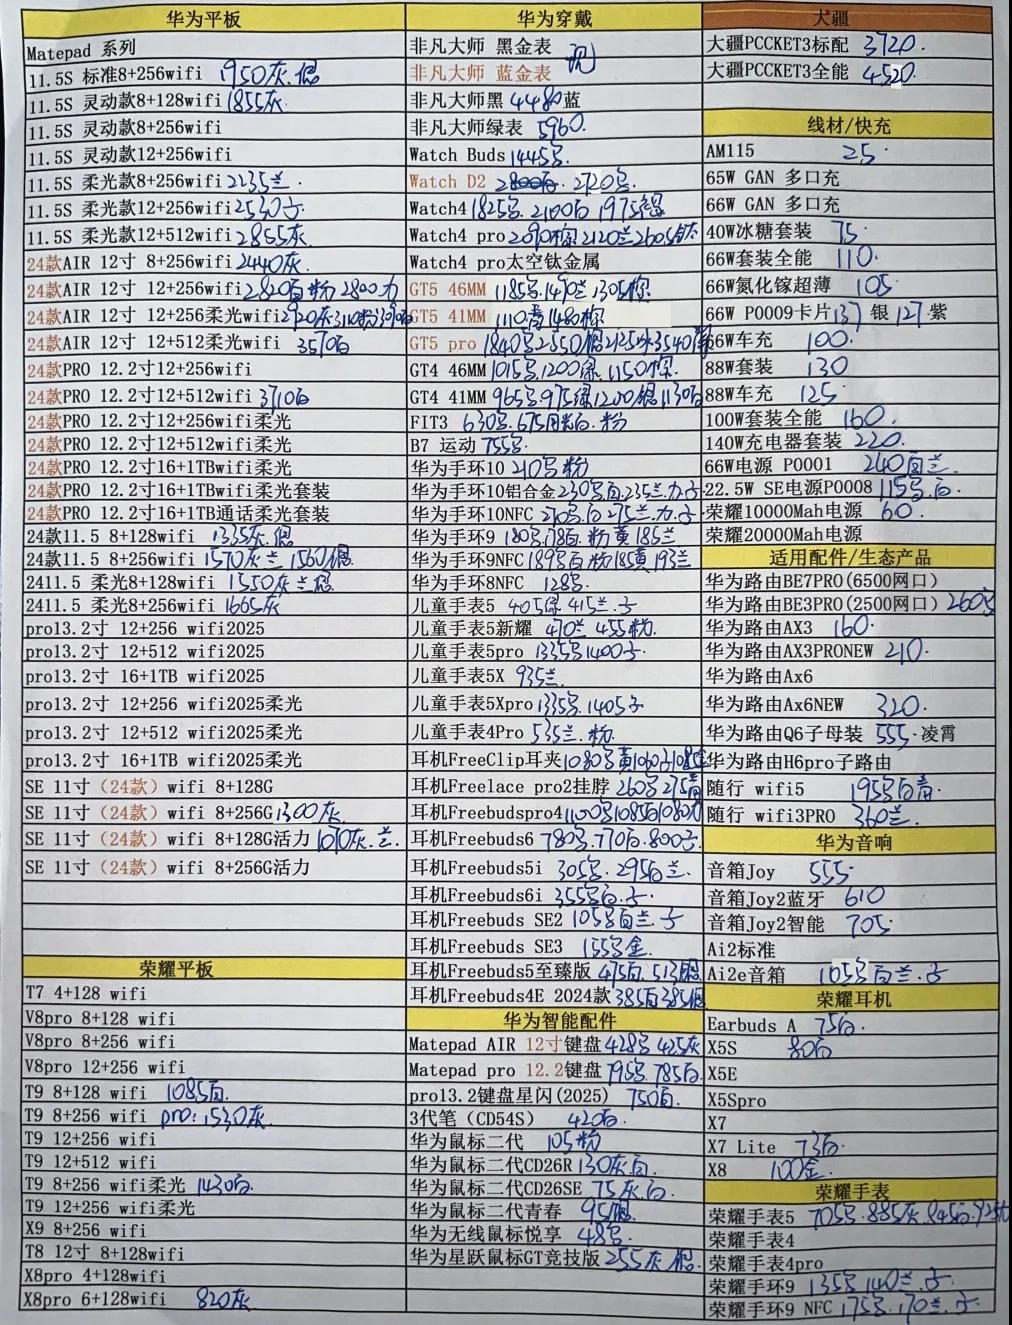 华为平板
Matepad 系列
11.5S 标准8+256wifi 1950灰.银
11.5S 灵动款8+128wifi 1855灰
11.5S 灵动款8+256wifi
11.5S 灵动款12+256wifi
11.5S 柔光款8+256wifi 2135兰.
11.5S 柔光款12+256wifi 2530子.
11.5S 柔光款12+512wifi 2855灰
24款AIR 12寸 8+256wifi 2440灰.
24款AIR 12寸 12+256wifi 2820百粉 2800力
24款AIR 12寸 12+256柔光wifi
24款AIR 12寸 12+512柔光wifi 3570百
24款PRO 12.2寸12+256wifi
24款PRO 12.2寸12+512wifi 3710百
24款PRO 12.2寸12+256wifi柔光
24款PRO 12.2寸12+512wifi柔光
24款PRO 12.2寸16+1TBwifi柔光
24款PRO 12.2寸16+1TBwifi柔光套装
24款PRO 12.2寸16+1TB通话柔光套装
24款11.5 8+128wifi 1335灰.银
24款11.5 8+256wifi 1570灰兰 1560银.
2411.5 柔光8+128wifi 1550灰兰银.
2411.5 柔光8+256wifi 1665灰
pro13.2寸 12+256 wifi2025
pro13.2寸 12+512 wifi2025
pro13.2寸 16+1TB wifi2025
pro13.2寸 12+256 wifi2025柔光
pro13.2寸 12+512 wifi2025柔光
pro13.2寸 16+1TB wifi2025柔光
SE 11寸（24款）wifi 8+128G
SE 11寸（24款）wifi 8+256G 1300灰.
SE 11寸（24款）wifi 8+128G活力 1070灰.兰.
SE 11寸（24款）wifi 8+256G活力
荣耀平板
T7 4+128 wifi
V8pro 8+128 wifi
V8pro 8+256 wifi
V8pro 12+256 wifi
T9 8+128 wifi 1085百.
T9 8+256 wifi pro: 1530灰.
T9 12+256 wifi
T9 12+512 wifi
T9 8+256 wifi柔光 1430百.
T9 12+256 wifi柔光
X9 8+256 wifi
T8 12寸 8+128wifi
X8pro 4+128wifi
X8pro 6+128wifi 820灰
华为穿戴
非凡大师 黑金表
非凡大师 蓝金表
非凡大师黑 4480蓝
非凡大师绿表 5960.
Watch Buds 1445号.
Watch D2 2720号.
Watch4 1825号. 2100百 1975棕
Watch4 pro 2090棕 2120兰 2605钛
Watch4 pro太空钛金属
GT5 46MM 1185号.1470兰 1305棕
GT5 41MM 1110青 1480棕
GT5 pro
GT4 46MM 1015号.1200绿.1150棕.
GT4 41MM 965号 975绿 1200银 1130百
FIT3 630号.675月光百.粉
B7 运动 755号.
华为手环10 210号粉
华为手环10铝合金 230号百.235兰.力.子
华为手环10NFC 270号.百 275兰.力.子
华为手环9 180号.178百.粉黄185兰
华为手环9NFC 189号百粉185黄193兰
华为手环8NFC 128号.
儿童手表5 405绿 415兰.子
儿童手表5新耀 470兰 455粉.
儿童手表5pro 1335号1400子.
儿童手表5X 935兰.
儿童手表5Xpro 1335号.1405子
儿童手表4Pro 535兰.粉.
耳机FreeClip耳夹
耳机Freelace pro2挂脖 260号275青
耳机Freebudspro4 1100号1085百1080力
耳机Freebuds6 780号.770百.800子.
耳机Freebuds5i 305号.295百兰.
耳机Freebuds6i 355号百.子.
耳机Freebuds SE2 105号百兰.子
耳机Freebuds SE3 155号金.
耳机Freebuds5至臻版 475百.513银
耳机Freebuds4E 2024款 385百385银
华为智能配件
Matepad AIR 12寸键盘 428号 425灰
Matepad pro 12.2键盘 795号.785百.
pro13.2键盘星闪(2025) 750百.
3代笔（CD54S） 420百.
华为鼠标二代 105粉
华为鼠标二代CD26R 130灰百.
华为鼠标二代CD26SE 75灰.百.
华为鼠标二代青春 95银.
华为无线鼠标悦享 48号.
华为星跃鼠标GT竞技版 255灰.银.
大疆
大疆PCCKET3标配 3720.
大疆PCCKET3全能 4520.
线材/快充
AM115 25.
65W GAN 多口充
66W GAN 多口充
40W冰糖套装 75.
66W套装全能 110.
66W氮化镓超薄 105.
66W P0009卡片137 银 127.紫
66W车充 100.
88W套装 130
88W车充 125.
100W套装全能 160.
140W充电器套装 220.
66W电源 P0001 240百兰.
22.5W SE电源P0008 115号.百.
荣耀10000Mah电源 60.
荣耀20000Mah电源
适用配件/生态产品
华为路由BE7PRO(6500网口)
华为路由BE3PRO(2500网口) 260号
华为路由AX3 160.
华为路由AX3PRONEW 210.
华为路由Ax6
华为路由Ax6NEW 320.
华为路由Q6子母装 555.凌霄
华为路由H6pro子路由
随行 wifi5 195号百青.
随行 wifi3PRO 360兰.
华为音响
音箱Joy 555.
音箱Joy2蓝牙 610
音箱Joy2智能 705.
Ai2标准
Ai2e音箱 105号百兰.子
荣耀耳机
Earbuds A 75百.
X5S 80百
X5E
X5Spro
X7
X7 Lite 73百.
X8 100金.
荣耀手表
荣耀手表5 705号.885灰.845百.925
荣耀手表4
荣耀手表4pro
荣耀手环9 135号140兰.子
荣耀手环9 NFC 175号.170兰.子.